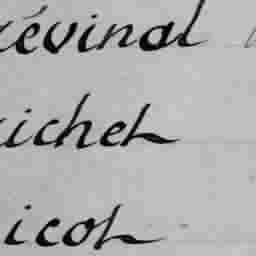 révinal
ichet
icot